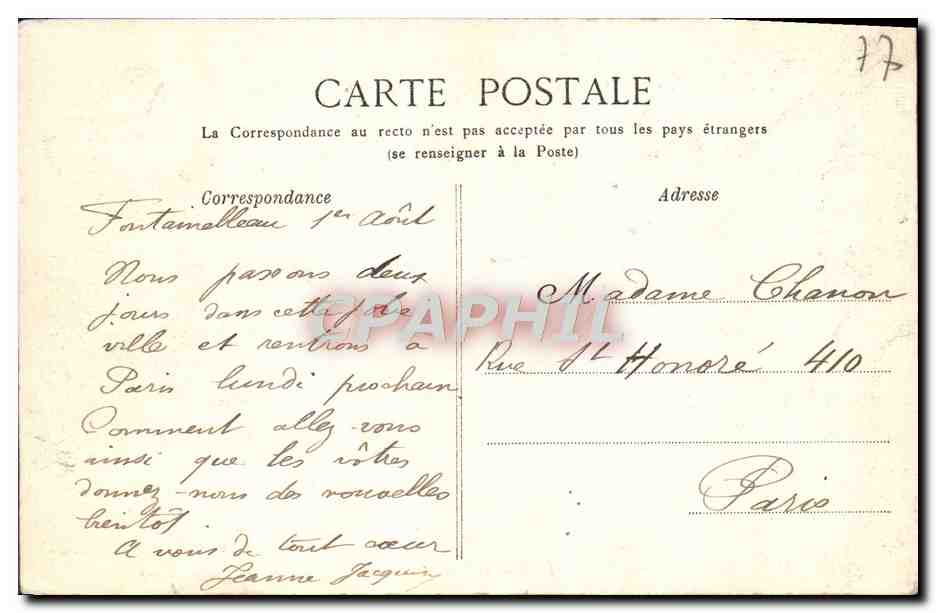 77
CARTE POSTALE
La Correspondance au recto n'est pas acceptée par tous les pays étrangers
(se renseigner à la Poste)
Correspondance
Fontainebleau 1er Août
Nous passons deux
jours dans cette jolie
ville et rentrons à
Paris lundi prochain
Comment allez-vous
ainsi que les vôtres
donnez-nous des nouvelles
bientôt.
A vous de tout coeur
Jeanne
Adresse
Madame Chanon
Rue St Honoré 410
Paris
CPAPHIL